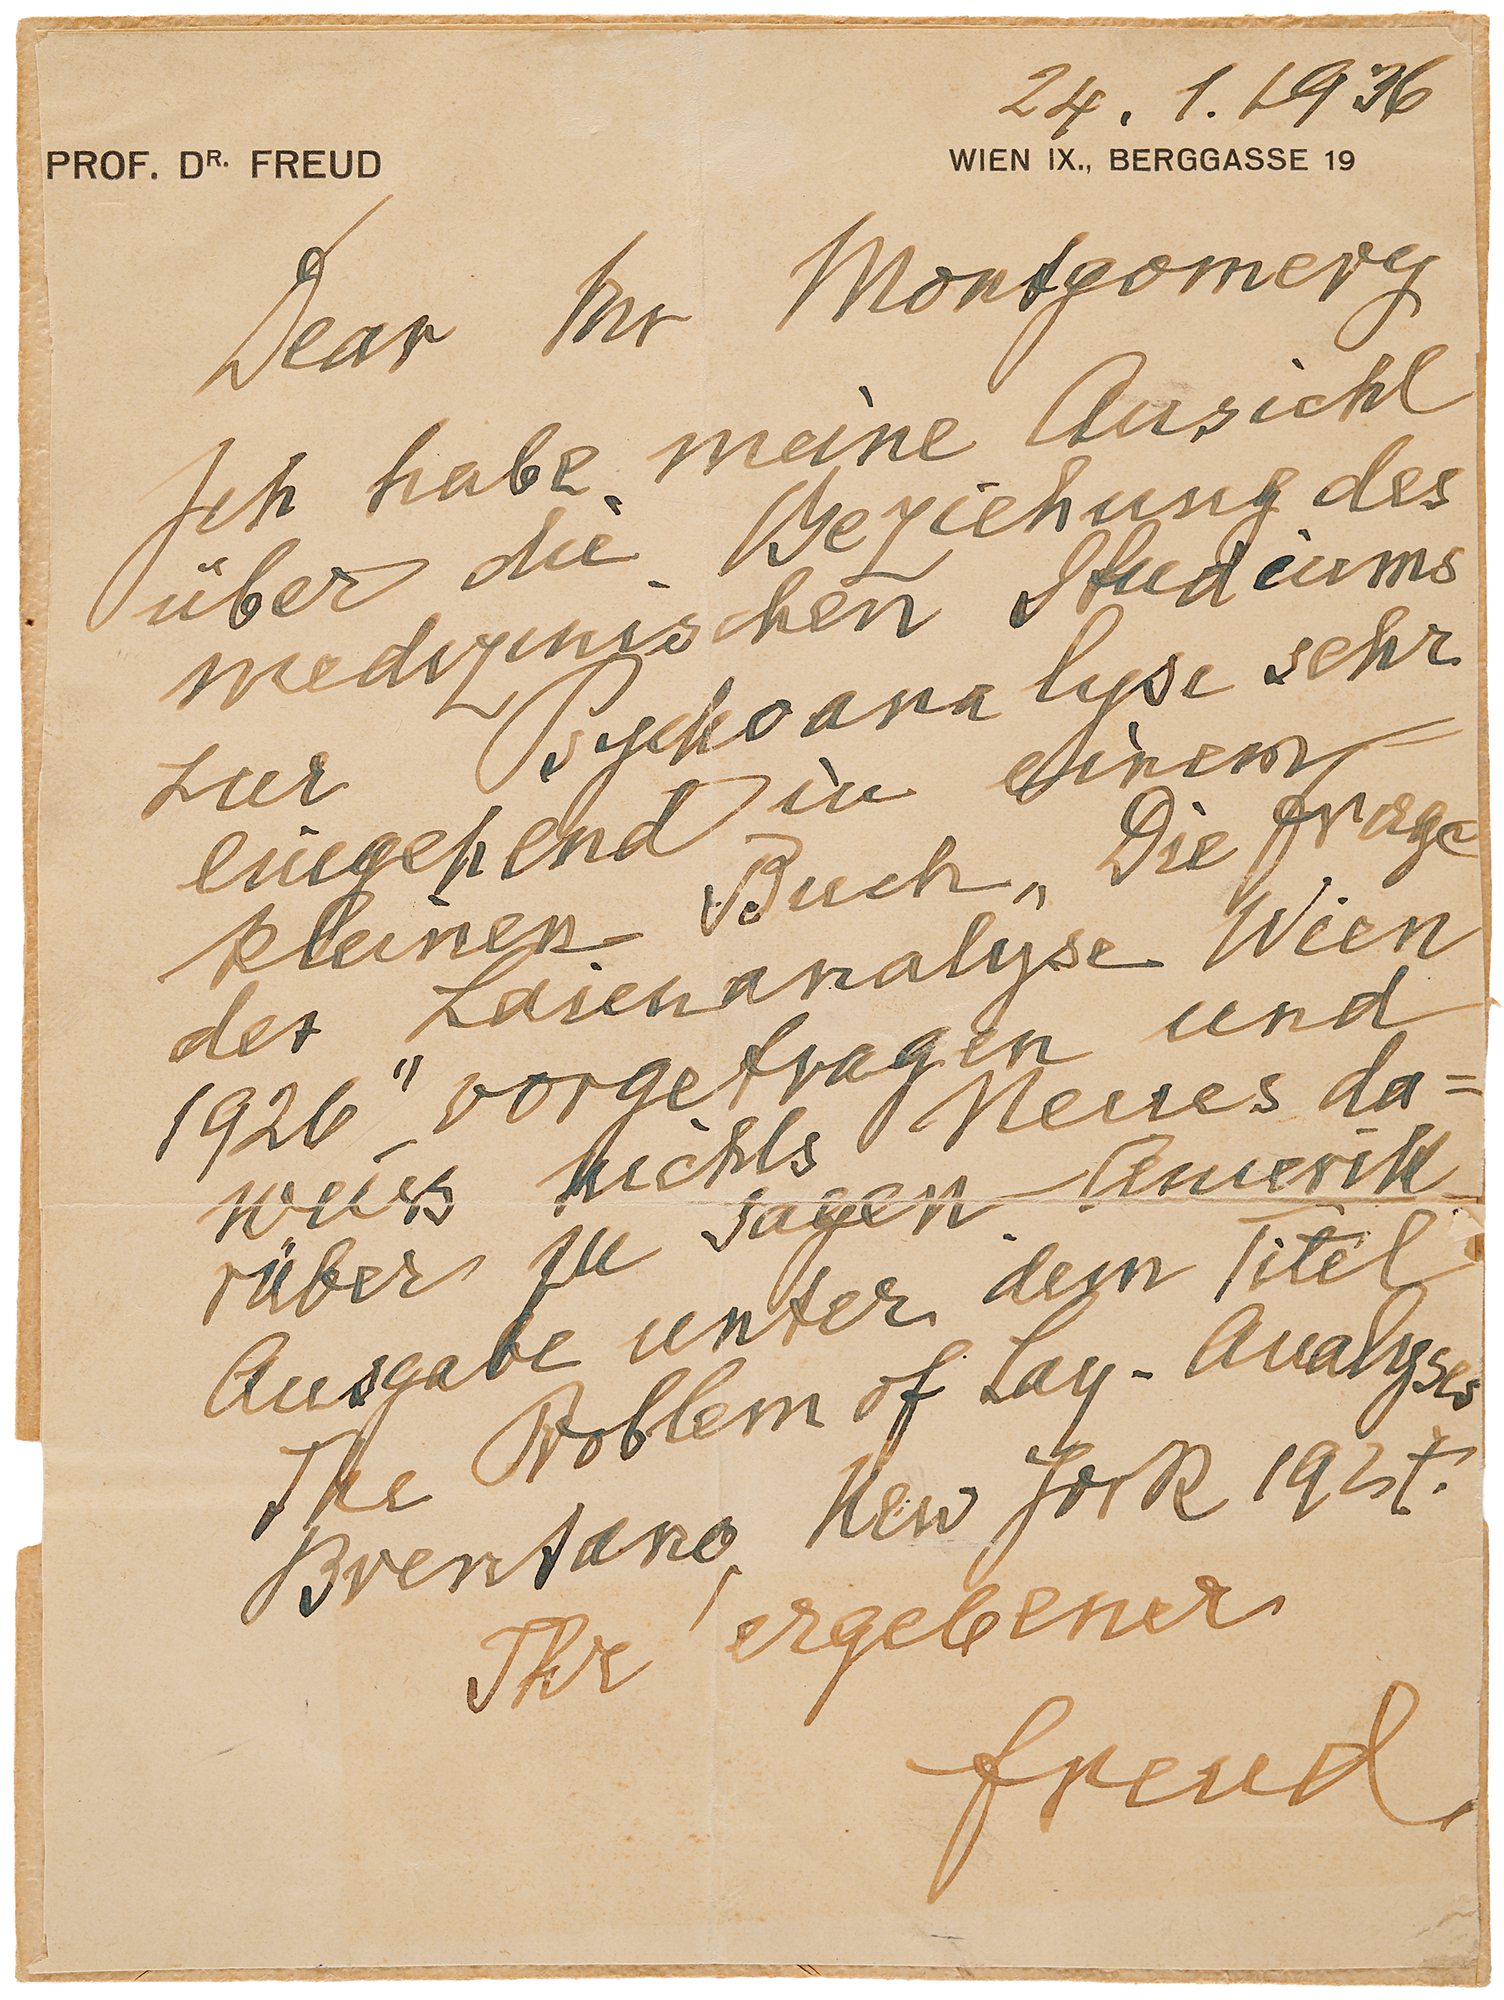 24. 1. 1936
PROF. DR. FREUD WIEN IX., BERGGASSE 19
Dear Mr Montgomery
Ich habe meine Ansicht
über die Beziehung des
medizinischen Studiums
zur Psychoanalyse sehr
eingehend in einem
kleinen Buch „Die Frage
der Laienanalyse Wien
1926" vorgetragen und
weiss nichts Neues da=
rüber zu sagen. Amerik
Ausgabe unter dem Titel
The Problem of Lay-Analyses
Brentano, New York
Ihr ergebener
Freud